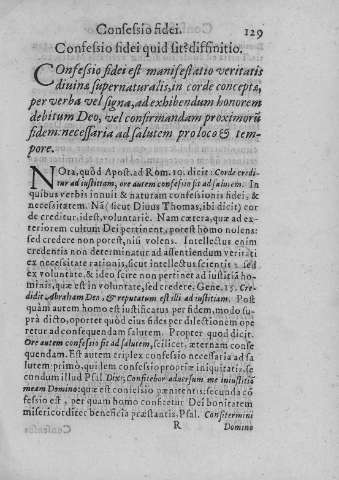 Confessio fidei. 129
Confessio fidei quid sit? diffinitio.
COnfessio fidei est manifestatio veritatis
divinæ supernaturalis, in corde concepta,
per verba vel signa, ad exhibendum honorem
debitum Deo, vel confirmandam proximorũ
fidem: necessaria ad salutem pro loco & tem-
pore.
NOta, quòd Apost. ad Rom. 10. dicit: Corde credi-
tur ad iustitiam, ore autem confessio fit ad salutem. In
quibus verbis innuit & naturam confessionis fidei, &
necessitatem. Nã (sicut Divus Thomas, ibi dicit) cor
de creditur, idest, voluntariè. Nam cætera, quæ ad ex-
teriorem cultum Dei pertinent, potest homo nolens:
sed credere non potest, nisi volens. Intellectus enim
credentis non determinatur ad assentiendum veritati
ex necessitate rationis, sicut intellectus scientis: sed
ex voluntate, & ideo scire non pertinet ad iustitiã ho-
minis, quæ est in voluntate, sed credere. Gene. 15. Cre-
didit Abraham Deo, & reputatum est illi ad iustitiam. Post
quàm autem homo est iustificatus per fidem, modo su-
prà dicto, oportet quòd eius fides per dilectionem ope
retur ad consequendam salutem. Propter quod dicit:
Ore autem confessio fit ad salutem, scilicet, æternam conse
quendam. Est autem triplex confessio necessaria ad sa
lutem: primò, quidem confessio propriæ iniquitatis, se
cundùm illud Psal. Dixi, Confitebor adversum me iniustitiã
meam Domino: quæ est conscisio pœnitentis: secunda cõ
fessio est, per quam homo confitetur Dei bonitatem
misericorditer beneficia præstantis. Psal. Confitemini
R Domino